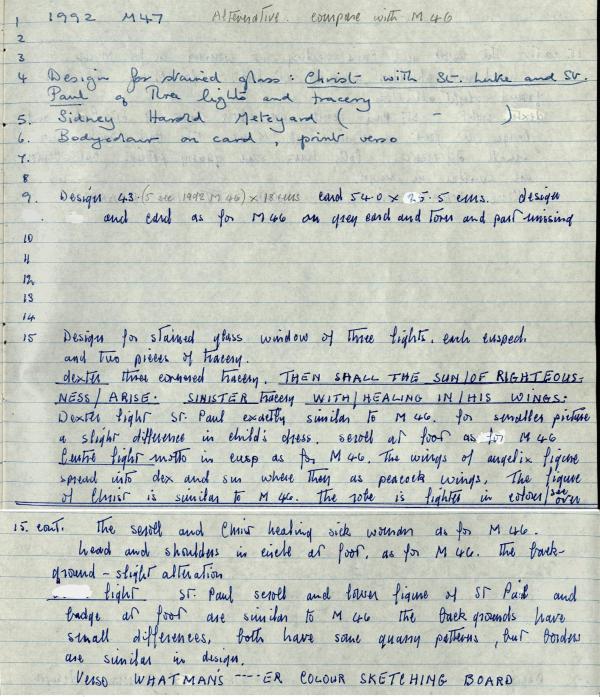 1 1992 M47 Alternative. compare with M 46
2
3
4 Design for stained glass: Christ with St. Luke and St.
Paul of three lights and tracery
5. Sidney Harold Meteyard ( - )
6. Bodycolour on card, print verso
7.
8
9. Design 43.(5 see 1992 M 46) x 18 cms card 54.0 x 25.5 cms. design
and card as for M 46 on grey card and torn and part missing
10
11
12
13
14
15 Design for stained glass window of three lights, each cusped
and two pieces of tracery.
dexter three cornered tracery. THEN SHALL THE SUN/OF RIGHTEOUS-
NESS/ARISE. SINISTER tracery WITH/HEALING IN/HIS WINGS.
Dexter light St. Paul exactly similar to M 46. for smaller picture
a slight difference in child's dress. scroll at foot as for M 46
Centre light motto in cusp as for M 46. The wings of angelix figure
spread into dex and sin where they as peacock wings. The figure
of Christ is similar to M 46. The robe is lighter in colour/see over
15. cont. The scroll and Christ healing sick woman as for M 46.
head and shoulders in circle at foot, as for M 46. The back-
ground - slight alteration
light St. Paul scroll and lower figure of St Paul and
badge at foot are similar to M 46 the backgrounds have
small differences, both have same quarry patterns, but borders
are similar in design.
Verso WHATMAN'S ----ER COLOUR SKETCHING BOARD